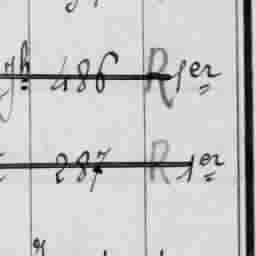 486 R 1er
287 R 1er